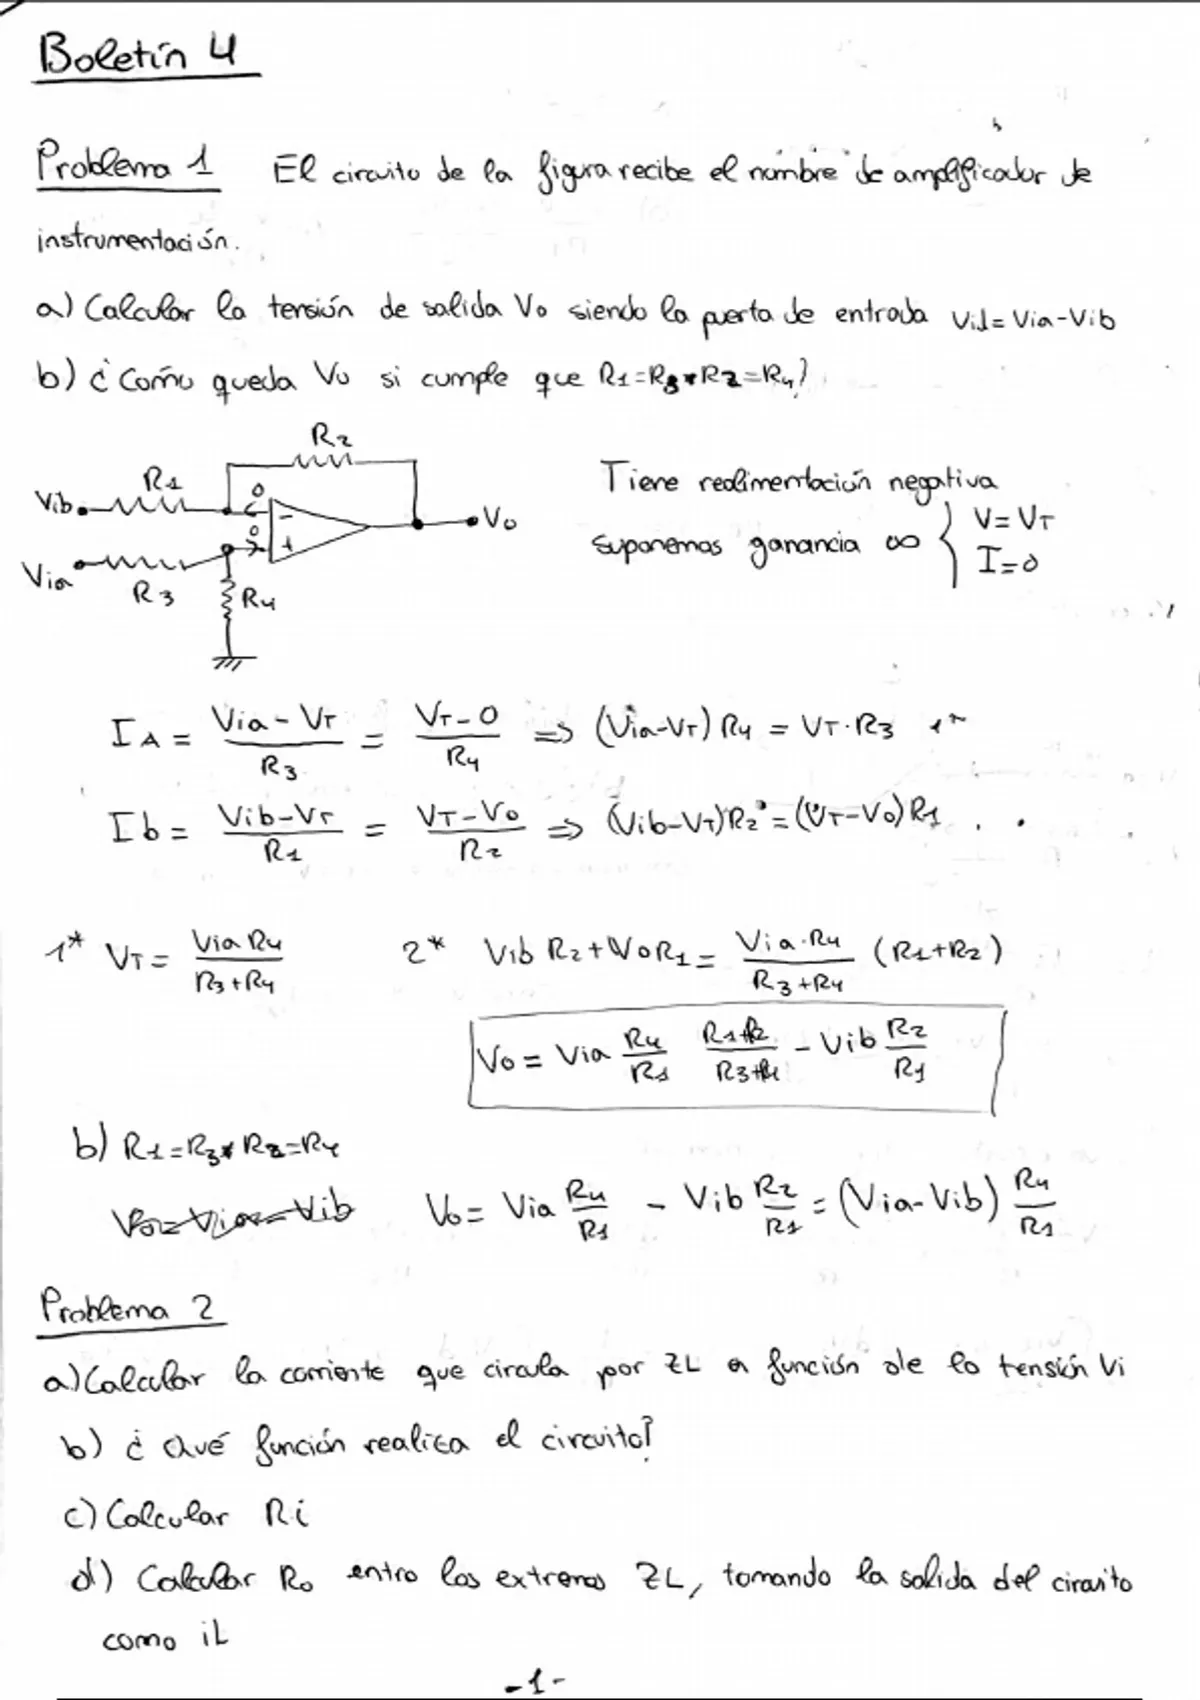 Boletín 4
Problema 1 El circuito de la figura recibe el nombre de amplificador de
instrumentación.
a) Calcular la tensión de salida Vo siendo la puerta de entrada Vid = Via-Vib
b) ¿Como queda Vo si cumple que R1=R3 * R2=R4?
R2
R1
Vib
0
-
Vo
0
+
Via
R3
R4
Tiene realimentación negativa
suponemos ganancia ∞ { V=VT
I=0
IA = (Via - VT)/R3 = (VT - 0)/R4 => (Via-VT) R4 = VT·R3 1*
Ib = (Vib-VT)/R1 = (VT-Vo)/R2 => (Vib-VT)R2 = (VT-Vo)R1
1* VT = Via R4/(R3+R4)
2* Vib R2 + Vo R1 = Via·R4/(R3+R4) (R1+R2)
Vo = Via R4/R1 (R1+R2)/(R3+R4) - Vib R2/R1
b) R1=R3 * R2=R4
Vo=Via-Vib Vo = Via R4/R1 - Vib R2/R1 = (Via-Vib) R4/R1
Problema 2
a) Calcular la corriente que circula por ZL en función de la tensión Vi
b) ¿Qué función realiza el circuito?
c) Calcular Ri
d) Calcular Ro entre los extremos ZL, tomando la salida del circuito
como iL
-1-